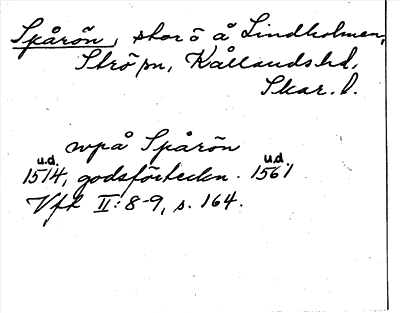 Spårön, storö å Lindholmen,
Strö sn, Kållands hd,
Skar. l.
uppå Spårön
u.d. u.d.
1514, godsförteckn. 1561
Vfk II: 8-9, s. 164.